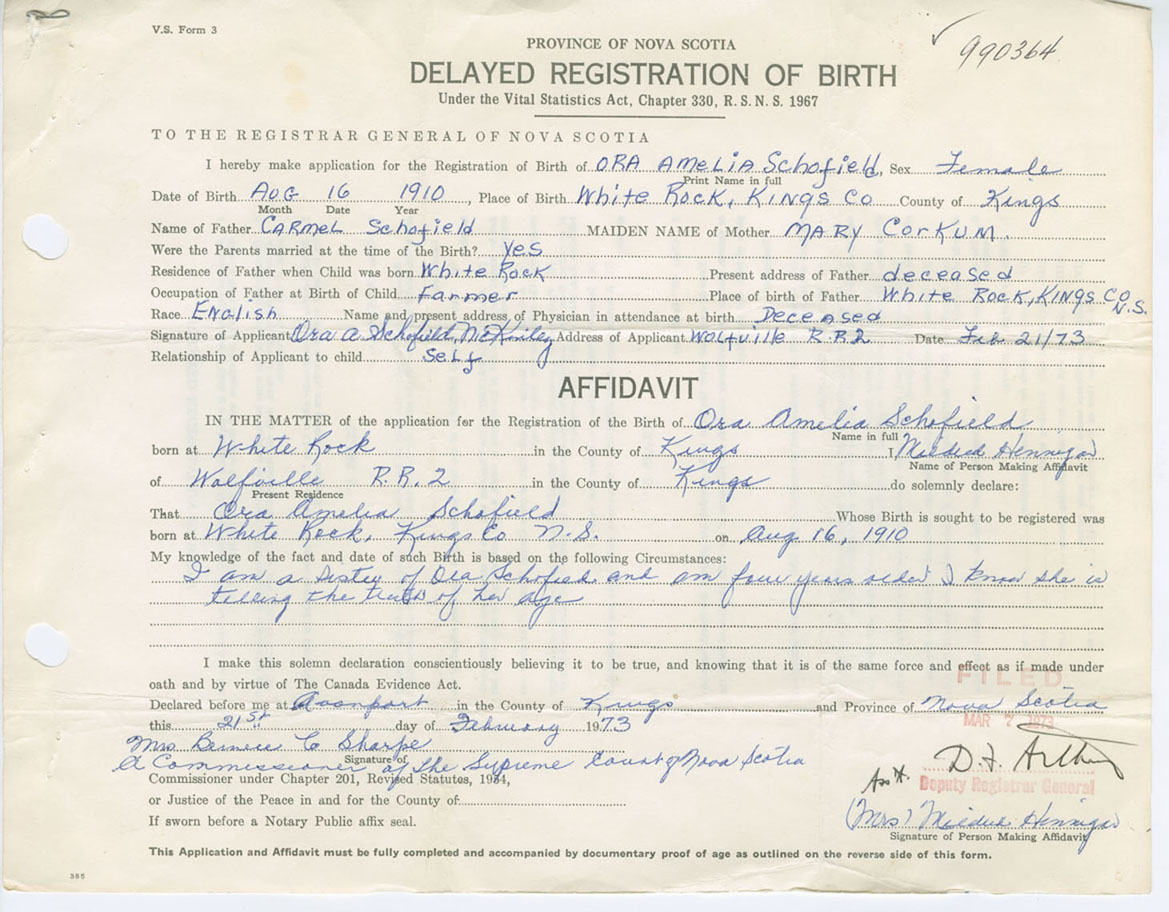 V.S. Form 3
990364
PROVINCE OF NOVA SCOTIA
DELAYED REGISTRATION OF BIRTH
Under the Vital Statistics Act, Chapter 330, R.S.N.S. 1967
TO THE REGISTRAR GENERAL OF NOVA SCOTIA
I hereby make application for the Registration of Birth of ORA AMELIA Schofield, Sex Female
Print Name in full
Date of Birth AUG 16 1910, Place of Birth White Rock, KINGS CO County of Kings
Month Date Year
Name of Father CARMEL Schofield MAIDEN NAME of Mother MARY CORKUM
Were the Parents married at the time of the Birth? Yes
Residence of Father when Child was born White Rock Present address of Father deceased
Occupation of Father at Birth of Child Farmer Place of birth of Father White Rock, KINGS CO N.S.
Race English Name and present address of Physician in attendance at birth Deceased
Signature of Applicant Ora A Schofield McKinley Address of Applicant Wolfville R.R.2 Date Feb 21/73
Relationship of Applicant to child Self
AFFIDAVIT
IN THE MATTER of the application for the Registration of the Birth of Ora Amelia Schofield
Name in full
born at White Rock in the County of Kings I, Mildred Hennigar
Name of Person Making Affidavit
of Wolfville R.R. 2 in the County of Kings do solemnly declare:
Present Residence
That Ora Amelia Schofield Whose Birth is sought to be registered was
born at White Rock, Kings Co N.S. on Aug 16, 1910
My knowledge of the fact and date of such Birth is based on the following Circumstances:
I am a Sister of Ora Schofied and am four years older I know she is
telling the truth of her age
I make this solemn declaration conscientiously believing it to be true, and knowing that it is of the same force and effect as if made under
oath and by virtue of The Canada Evidence Act.
FILED
Declared before me at Avonport in the County of Kings and Province of Nova Scotia
MAR 7 1973
this 21st day of February 1973
Mrs Bernice C Sharpe
Signature of
A Commissioner of the Supreme Court of Nova Scotia
Commissioner under Chapter 201, Revised Statutes, 1954,
Ass't. D. F. Arthur
Deputy Registrar General
or Justice of the Peace in and for the County of:
(Mrs) Mildred Hennigar
If sworn before a Notary Public affix seal.
Signature of Person Making Affidavit
This Application and Affidavit must be fully completed and accompanied by documentary proof of age as outlined on the reverse side of this form.
365